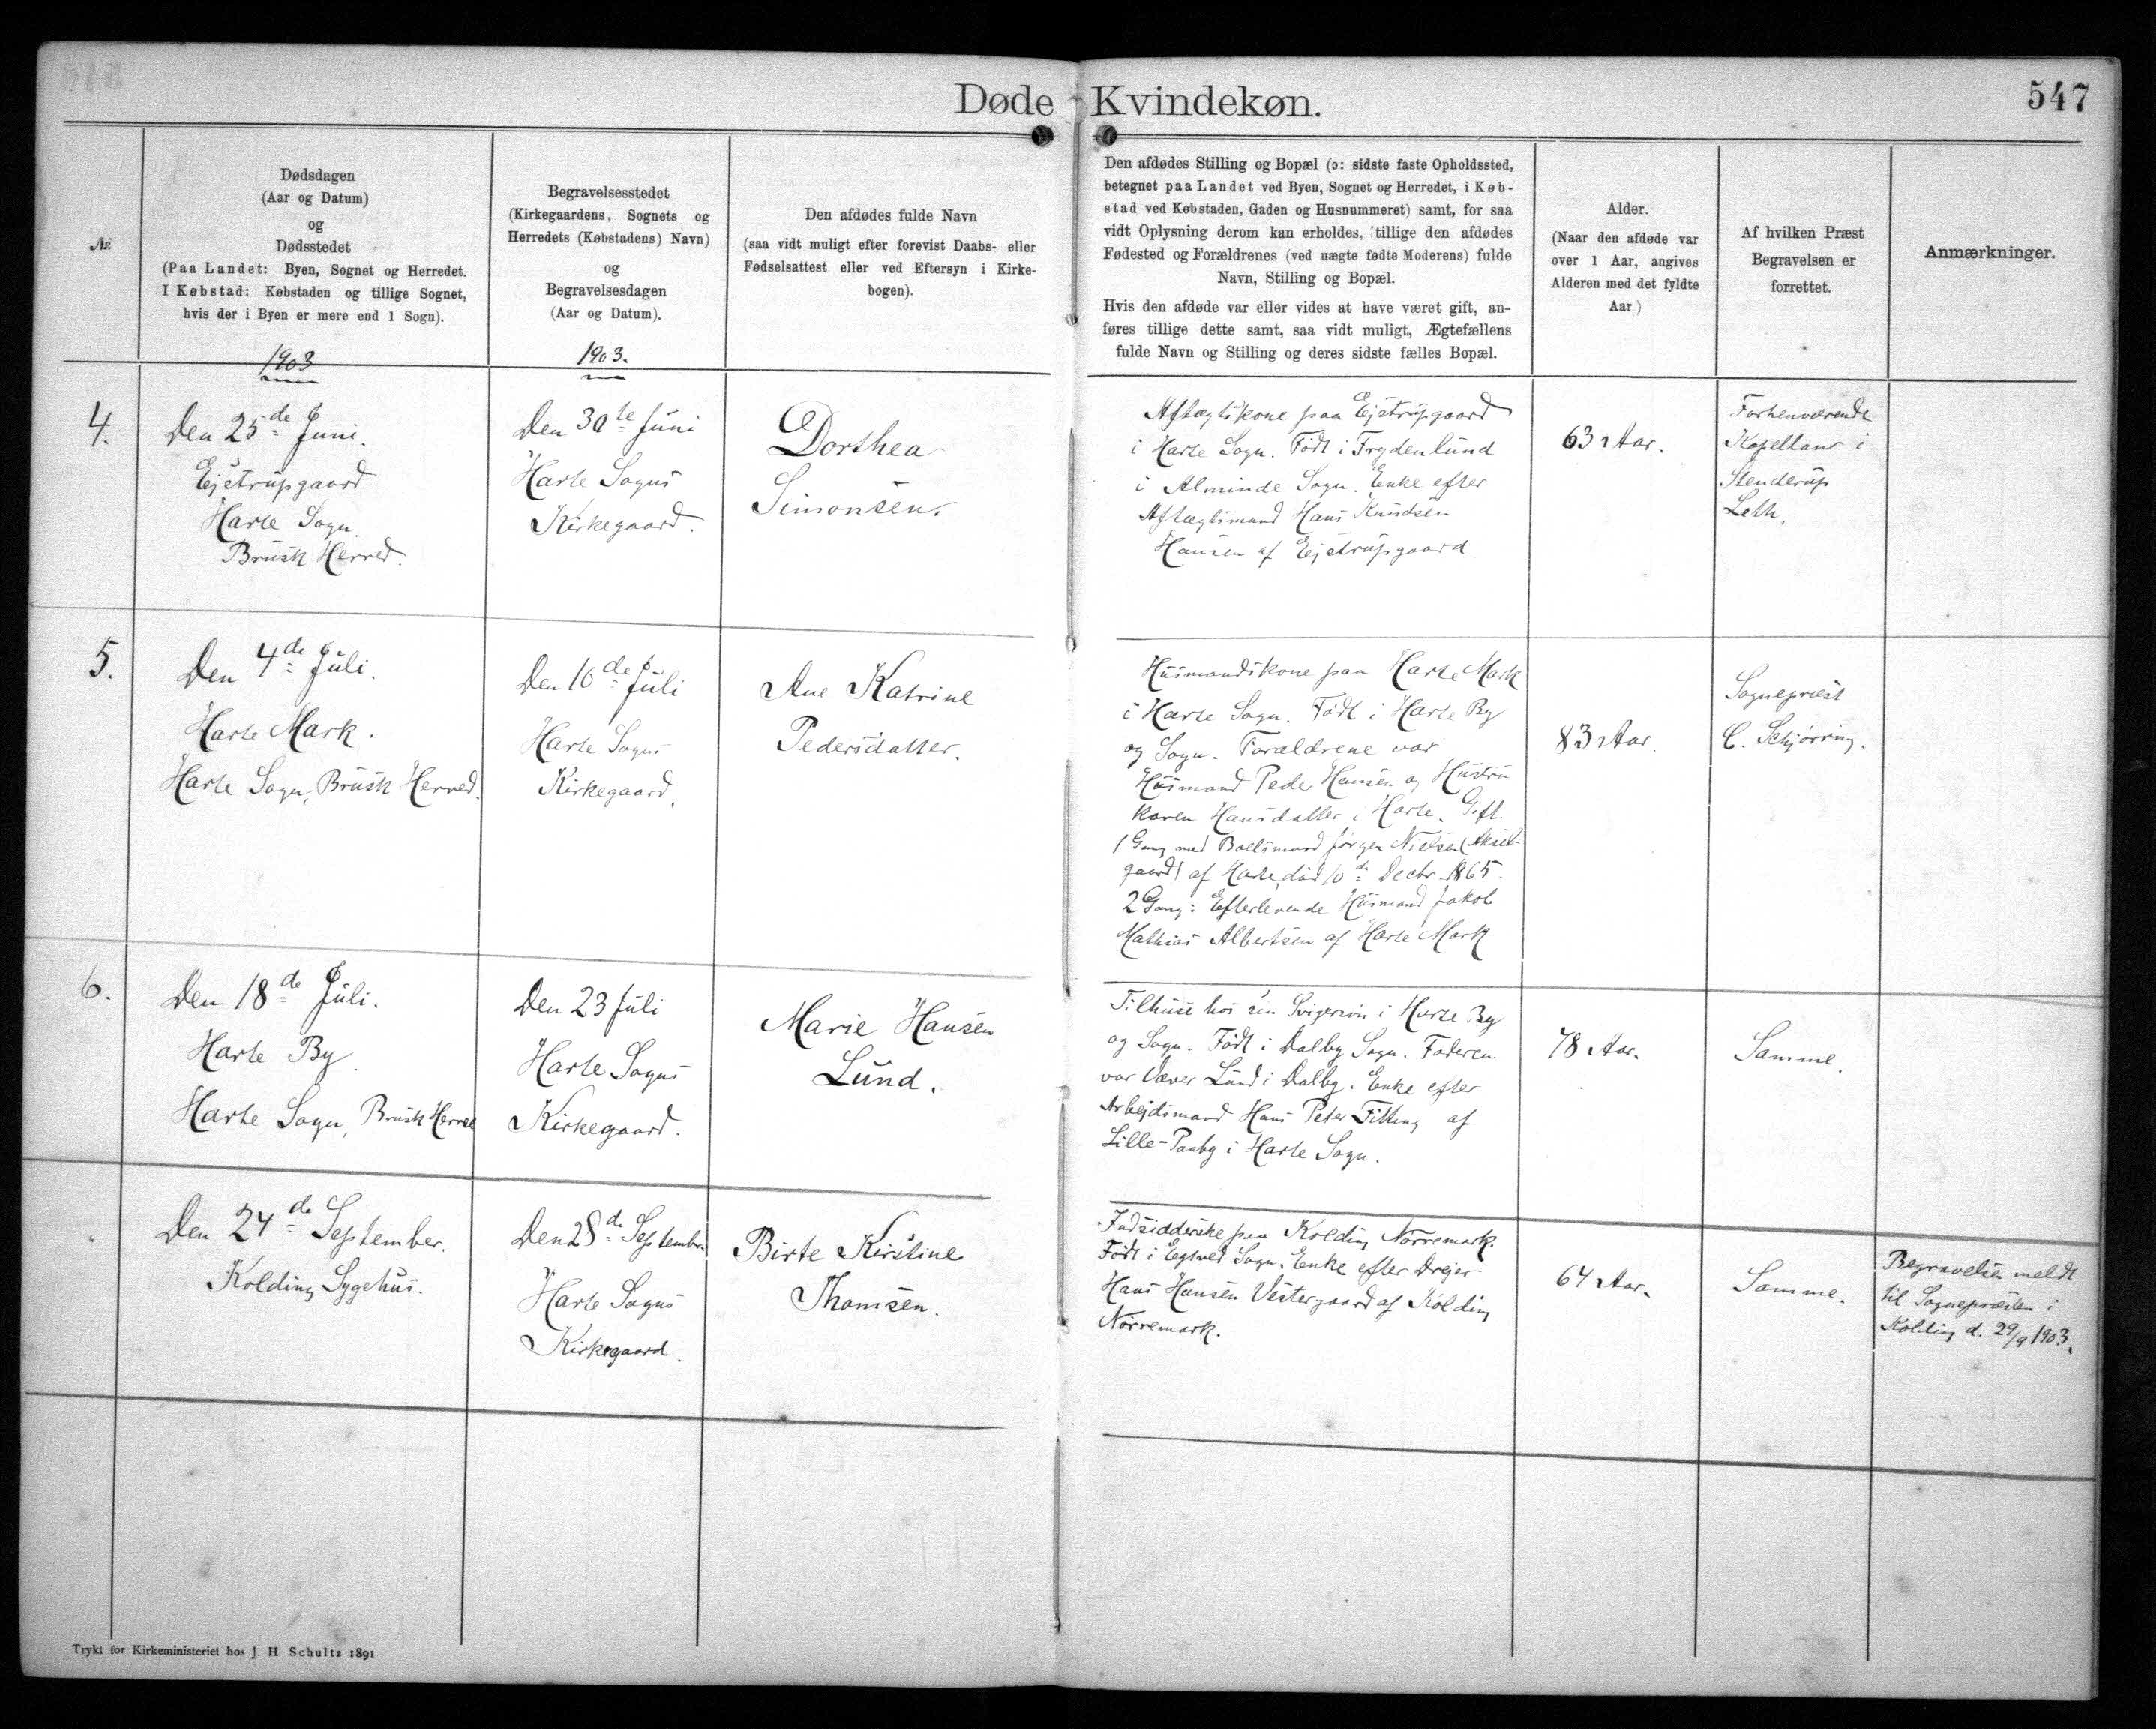 Døde Kvindekøn.
547
№
Dødsdagen
(Aar og Datum)
og
Dødsstedet
(Paa Landet: Byen, Sognet og Herredet.
I Købstad: Købstaden og tillige Sognet,
hvis der i Byen er mere end 1 Sogn).
Begravelsesstedet
(Kirkegaardens, Sognets og
Herredets (Købstadens) Navn)
og
Begravelsesdagen
(Aar og Datum).
Den afdødes fulde Navn
(saa vidt muligt efter forevist Daabs- eller
Fødselsattest eller ved Eftersyn i Kirke-
bogen).
Den afdødes Stilling og Bopæl (ɔ: sidste faste Opholdssted,
betegnet paa Landet ved Byen, Sognet og Herredet, i Køb-
stad ved Købstaden, Gaden og Husnummeret) samt, for saa
vidt Oplysning derom kan erholdes, tillige den afdødes
Fødested og Forældrenes (ved uægte fødte Moderens) fulde
Navn, Stilling og Bopæl.
Hvis den afdøde var eller vides at have været gift, an-
føres tillige dette samt, saa vidt muligt, Ægtefællens
fulde Navn og Stilling og deres sidste fælles Bopæl.
Alder.
(Naar den afdøde var
over 1 Aar, angives
Alderen med det fyldte
Aar)
Af hvilken Præst
Begravelsen er
forrettet.
Anmærkninger.
1903
1903.
4.
Den 25de Juni.
Ejstrupgaard
Harte Sogn.
Brusk Herred.
Den 30te Juni
Harte Sogns
Kirkegaard.
Dorthea
Simonsen.
Aftægtskone paa Ejstrupgaard
i Harte Sogn. Født i Frydenlund
i Alminde Sogn. Enke efter
Aftægtsmand Hans Knudsen
Hansen af Ejstrupgaard
63 Aar.
Forhenværende
Kapellan i
Stenderup
Leth.
5.
Den 4de Juli.
Harte Mark.
Harte Sogn, Brusk Herred.
Den 10de Juli
Harte Sogns
Kirkegaard.
Ane Katrine
Pedersdatter.
Husmandskone paa Harte Mark
i Harte Sogn. Født i Harte By
og Sogn. Forældrene var
Husmand Peder Hansen og Hustru
Karen Hansdatter i Harte. Gift.
1 Gang med Boelsmand Jørgen Nielsen
gaard) af Harte, død 10de Decbr. 1865.
2 Gang: Efterlevende Husmand Jakob
Mathias Albertsen af Harte Mark
83 Aar.
Sognepræst
C. Schjørring.
6.
Den 18de Juli.
Harte By
Harte Sogn, Brusk Herred
Den 23 Juli
Harte Sogns
Kirkegaard.
Marie Hansen
Lund.
Tilhuse hos sin Svigersøn i Harte By
og Sogn. Født i Dalby Sogn. Faderen
var Væver Lund i Dalby. Enke efter
Arbejdsmand Hans Peter Fitting af
Lille-Paaby i Harte Sogn.
78 Aar.
Samme.
"
Den 24de September.
Kolding Sygehus.
Den 28de September
Harte Sogns
Kirkegaard.
Birte Kirstine
Thomsen.
Indsidderske paa Kolding Nørremark.
Født i Egtved Sogn. Enke efter Drejer
Hans Hansen Vestergaard af Kolding
Nørremark.
64 Aar.
Samme.
Begravelsen meldt
til Sognepræsten i
Kolding d. 29/9 1903.
Trykt for Kirkeministeriet hos J. H Schultz 1891